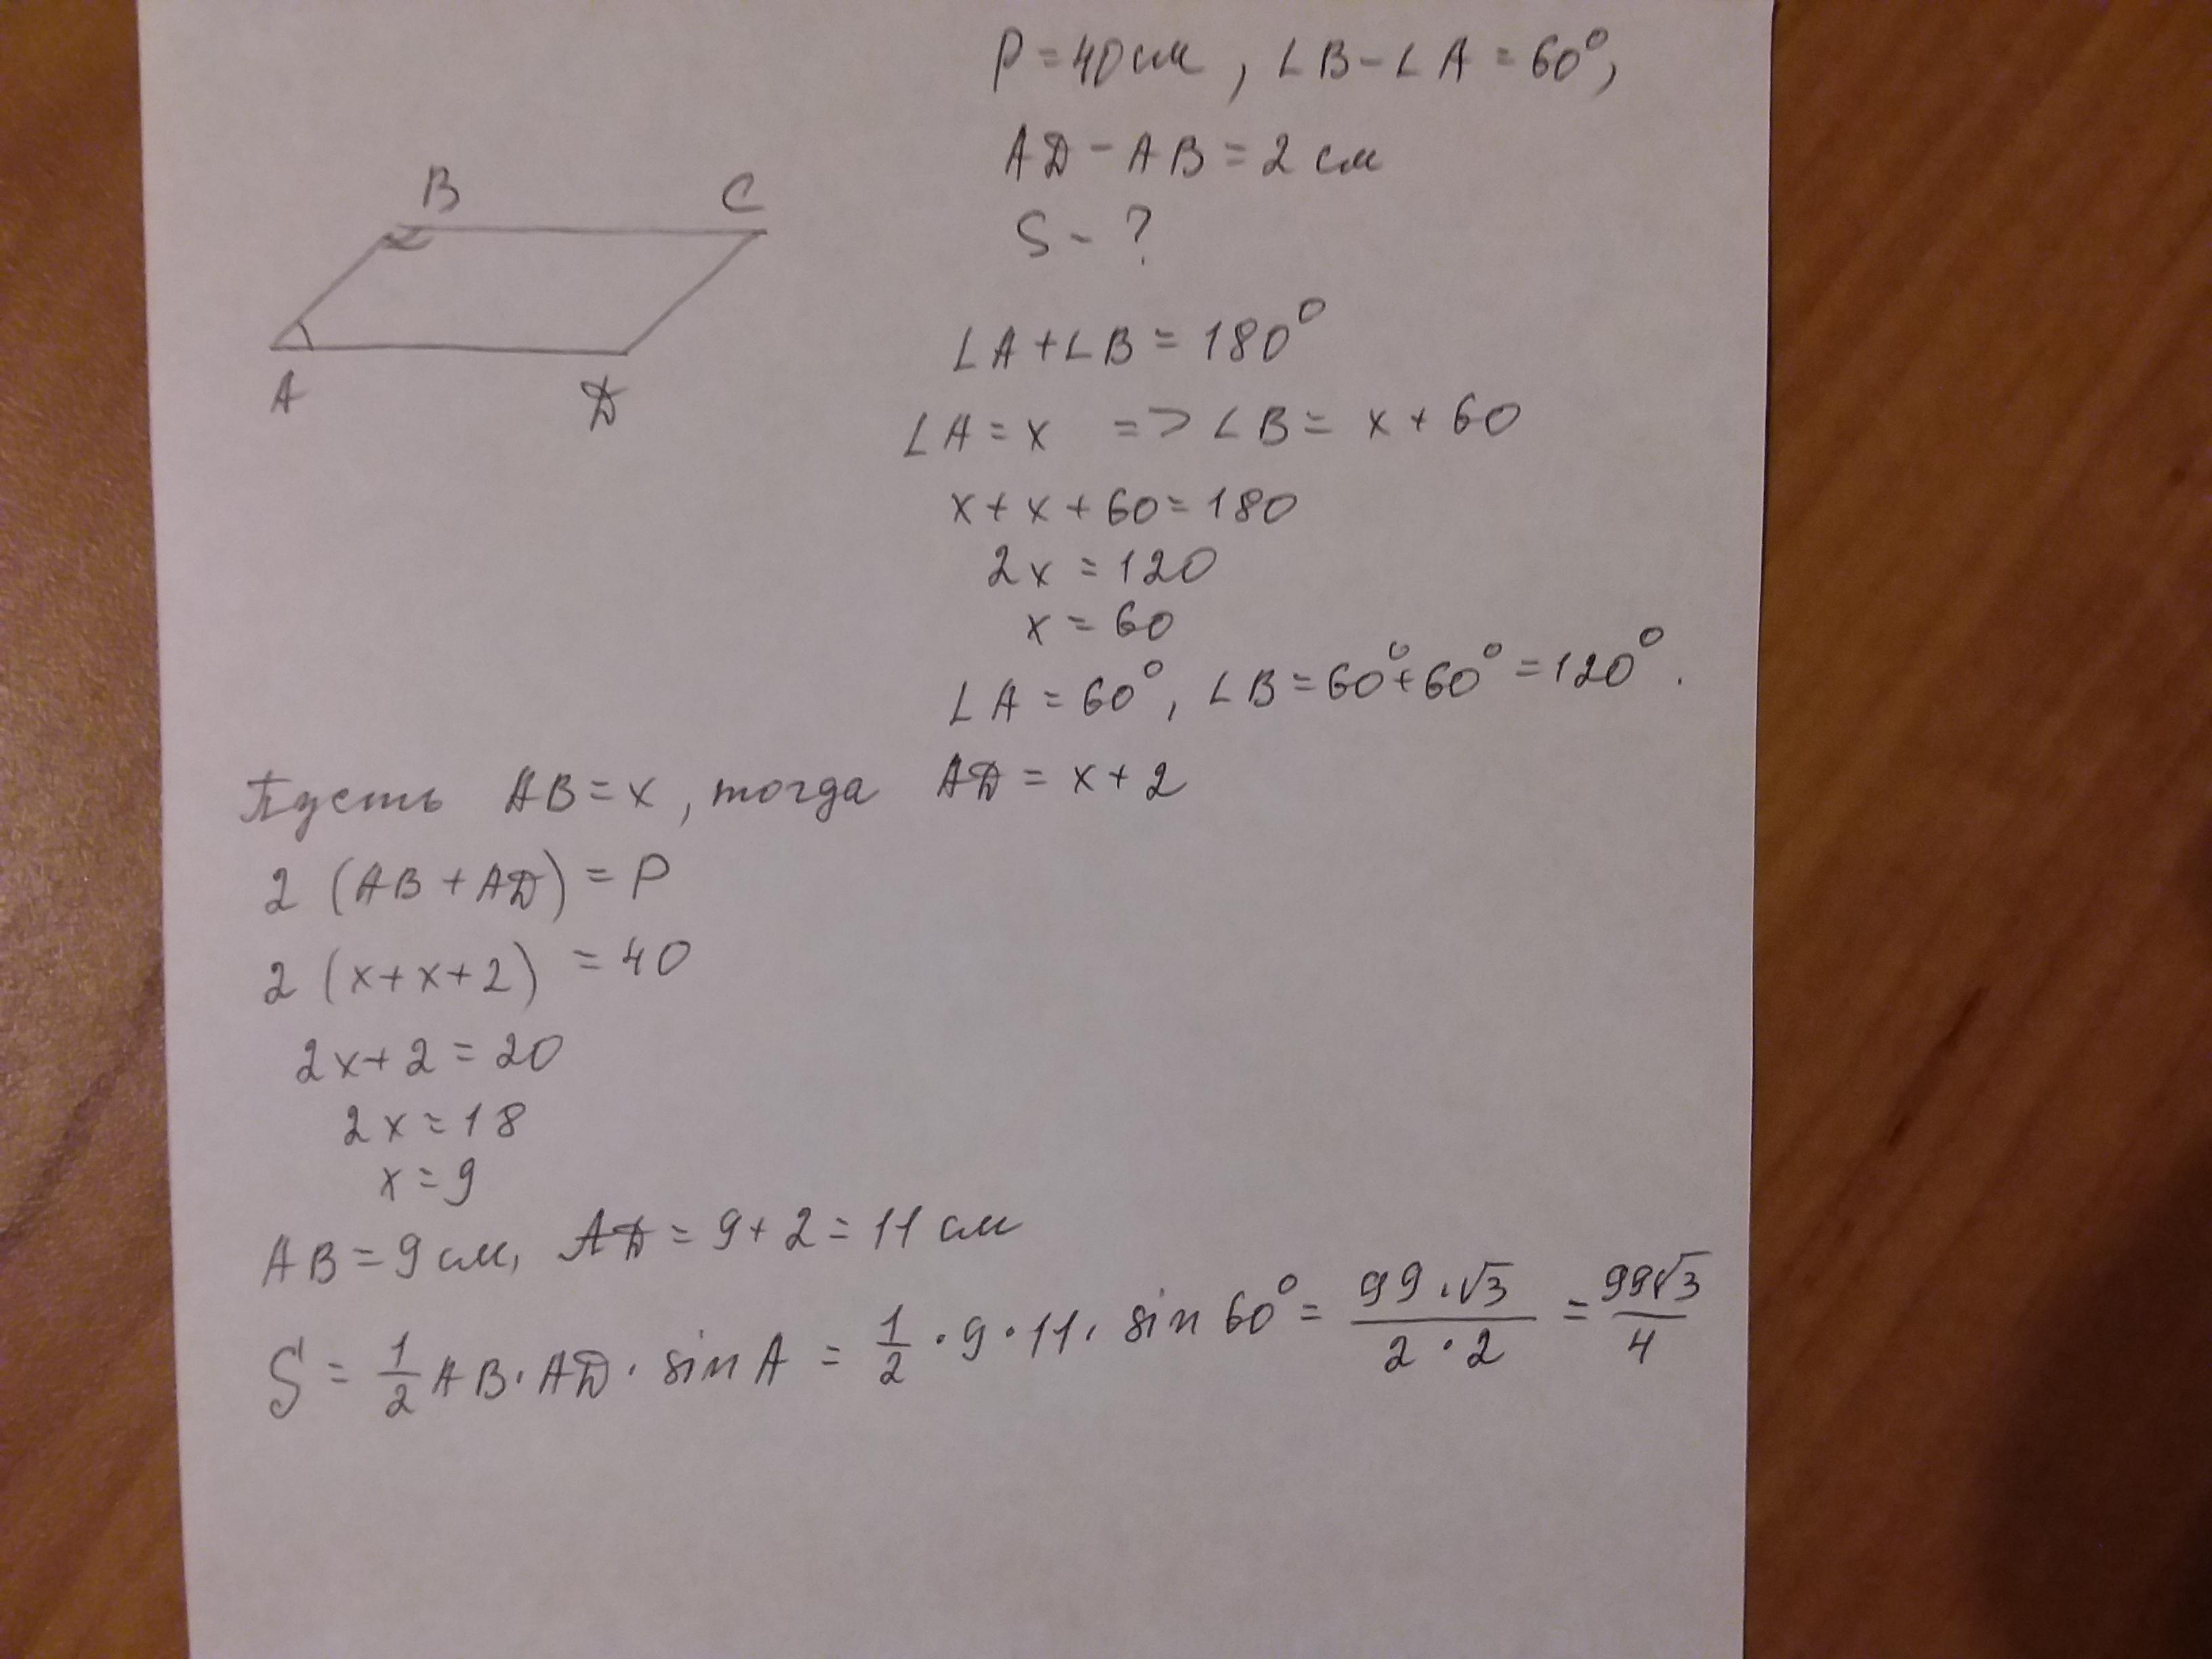 P = 40 см, ∠B - ∠A = 60°,
AD - AB = 2 см
S - ?
B C
A D
∠A + ∠B = 180°
∠A = x => ∠B = x + 60
x + x + 60 = 180
2x = 120
x = 60
∠A = 60°, ∠B = 60° + 60° = 120°.
Пусть AB = x, тогда AD = x + 2
2 (AB + AD) = P
2 (x + x + 2) = 40
2x + 2 = 20
2x = 18
x = 9
AB = 9 см, AD = 9 + 2 = 11 см
S = 1/2 AB · AD · sin A = 1/2 · 9 · 11 · sin 60° = (99 · √3)/(2 · 2) = 99√3/4